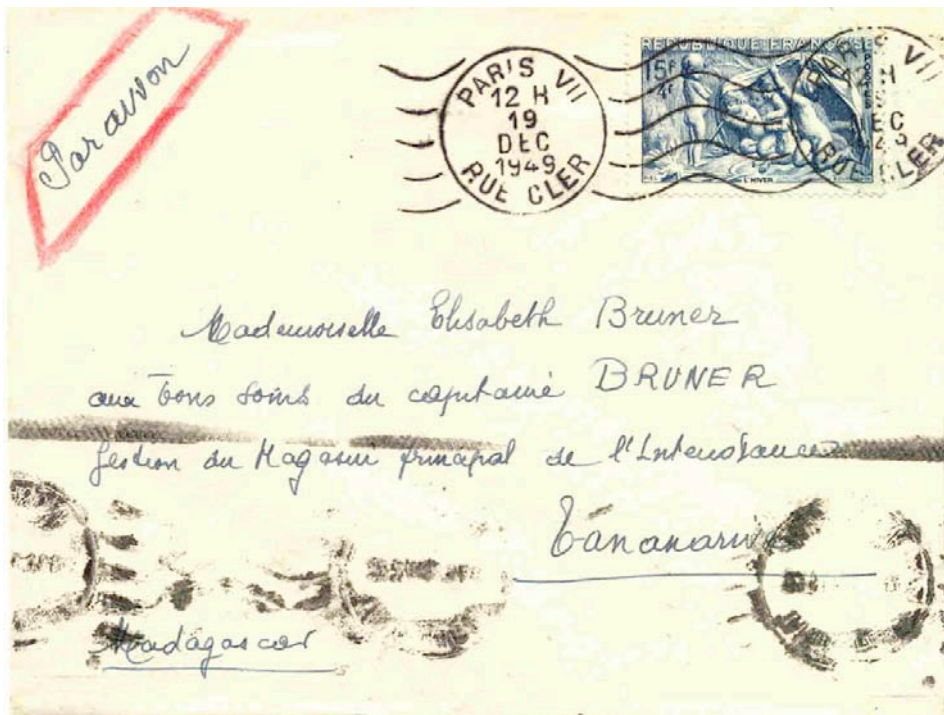 Par avion
PARIS VII
12 H
19
DEC
1949
RUE CLER
REPUBLIQUE FRANÇAISE
15F
POSTES
L'HIVER
PARIS VII
RUE CLER
Mademoiselle Elisabeth Bruner
aux bons soins du capitaine BRUNER
Gestion du Magasin principal de l'Intendance
Tananarive
Madagascar